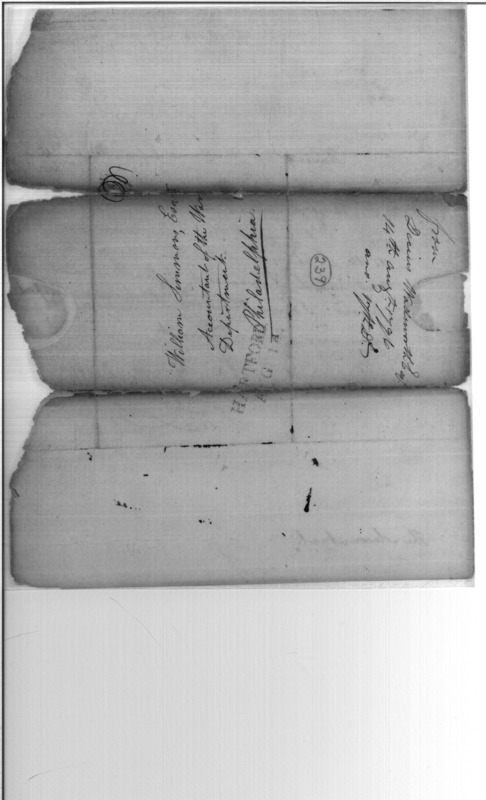 William Simmons Esqr
Accountant of the War
Department
Philadelphia
HARTFORD
AUG 14
239
from
Wadsworth Esq
14th Augt 1796
and